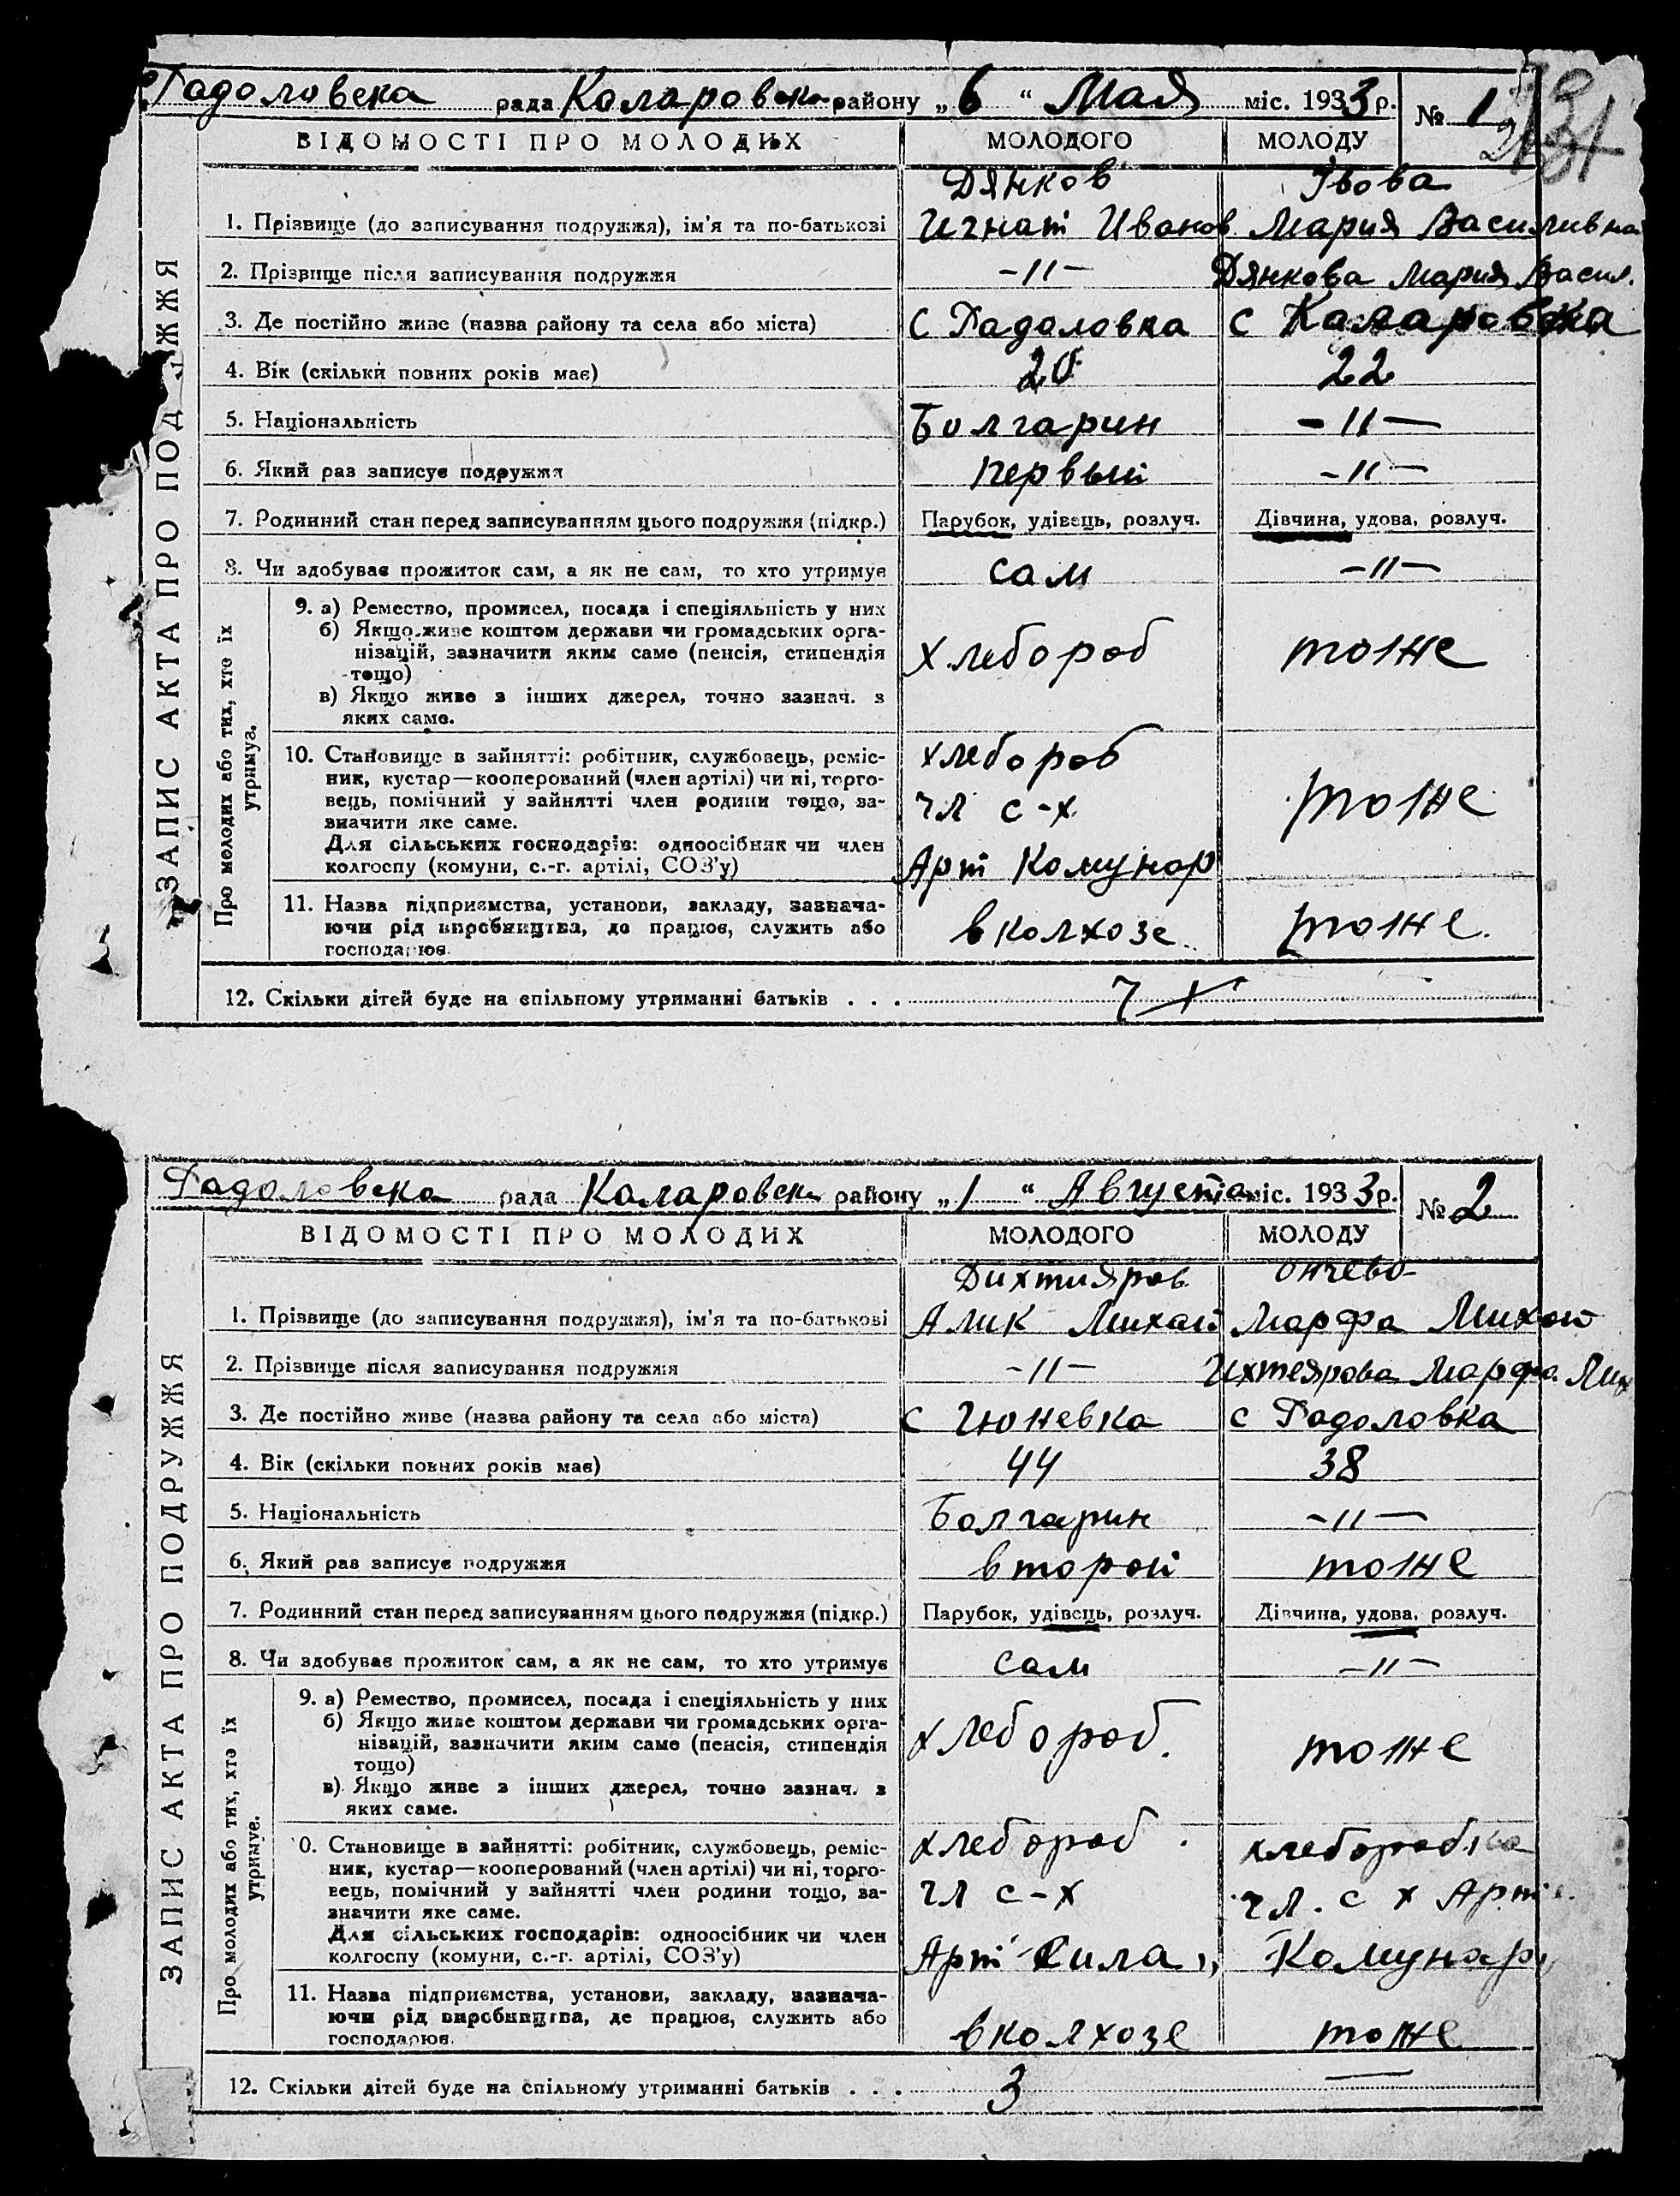 Радоловска рада Коларовска району „6“ Мая міс. 1933 р. № 1
ВІДОМОСТІ ПРО МОЛОДИХ МОЛОДОГО МОЛОДУ
ЗАПИС АКТА ПРО ПОД ЖЖЯ
Дянков
1. Прізвище (до записування подружжя), ім'я та по-батькові Игнат Иванов Мария Василивна
2. Прізвище після записування подружжя –〃– Дянкова Мария Васил.
3. Де постійно живе (назва району та села або міста) с Радоловка с Каларовка
4. Вік (скільки повних років має) 20 22
5. Національність Болгарин –〃–
6. Який раз записує подружжя первый –〃–
7. Родинний стан перед записуванням цього подружжя (підкр.) Парубок, удівець, розлуч. Дівчина, удова, розлуч.
8. Чи здобуває прожиток сам, а як не сам, то хто утримує сам –〃–
Про молодих або тих, хто їх
утримує.
9. а) Ремество, промисел, посада і спеціяльність у них
б) Якщо живе коштом держави чи громадських орга-
нізацій, зазначити яким саме (пенсія, стипендія
тощо)
хлебороб тоже
в) Якщо живе з інших джерел, точно зазнач. з
яких саме.
10. Становище в зайнятті: робітник, службовець, реміс- хлебороб
ник, кустар—кооперований (член артілі) чи ні, торго-
вець, помічний у зайнятті член родини тощо, за- чл с-х тоже
значити яке саме.
Для сільських господарів: одноосібник чи член
колгоспу (комуни, с.-г. артілі, СОЗ'у) Арт Комунар
11. Назва підприємства, установи, закладу, зазнача-
ючи рід виробництва, де працює, служить або в колхозе тоже.
господарює.
12. Скільки дітей буде на спільному утриманні батьків . . .
Радоловска рада Каларовск району „1“ Августа міс. 1933 р. № 2
ВІДОМОСТІ ПРО МОЛОДИХ МОЛОДОГО МОЛОДУ
ЗАПИС АКТА ПРО ПОДРУЖЖЯ
Дихтияров
1. Прізвище (до записування подружжя), ім'я та по-батькові Алик Михай Марфа Михай
2. Прізвище після записування подружжя –〃– Ихтеярова Марфа Мих
3. Де постійно живе (назва району та села або міста) с Гюневка с Радоловка
4. Вік (скільки повних років має) 44 38
5. Національність Болгарин –〃–
6. Який раз записує подружжя второй тоже
7. Родинний стан перед записуванням цього подружжя (підкр.) Парубок, удівець, розлуч. Дівчина, удова, розлуч.
8. Чи здобуває прожиток сам, а як не сам, то хто утримує сам –〃–
Про молодих або тих, хто їх
утримує.
9. а) Ремество, промисел, посада і спеціяльність у них
б) Якщо живе коштом держави чи громадських орга-
нізацій, зазначити яким саме (пенсія, стипендія
тощо)
хлебороб. тоже
в) Якщо живе з інших джерел, точно зазнач. з
яких саме.
0. Становище в зайнятті: робітник, службовець, реміс- хлебороб хлеборобка
ник, кустар—кооперований (член артілі) чи ні, торго-
вець, помічний у зайнятті член родини тощо, за- чл с-х чл. с х Арт
значити яке саме.
Для сільських господарів: одноосібник чи член
колгоспу (комуни, с.-г. артілі, СОЗ'у) Арт Сила„ Комунар„
11. Назва підприємства, установи, закладу, зазнача-
ючи рід виробництва, де працює, служить або
господарює. в колхозе тоже
12. Скільки дітей буде на спільному утриманні батьків . . . 3 —